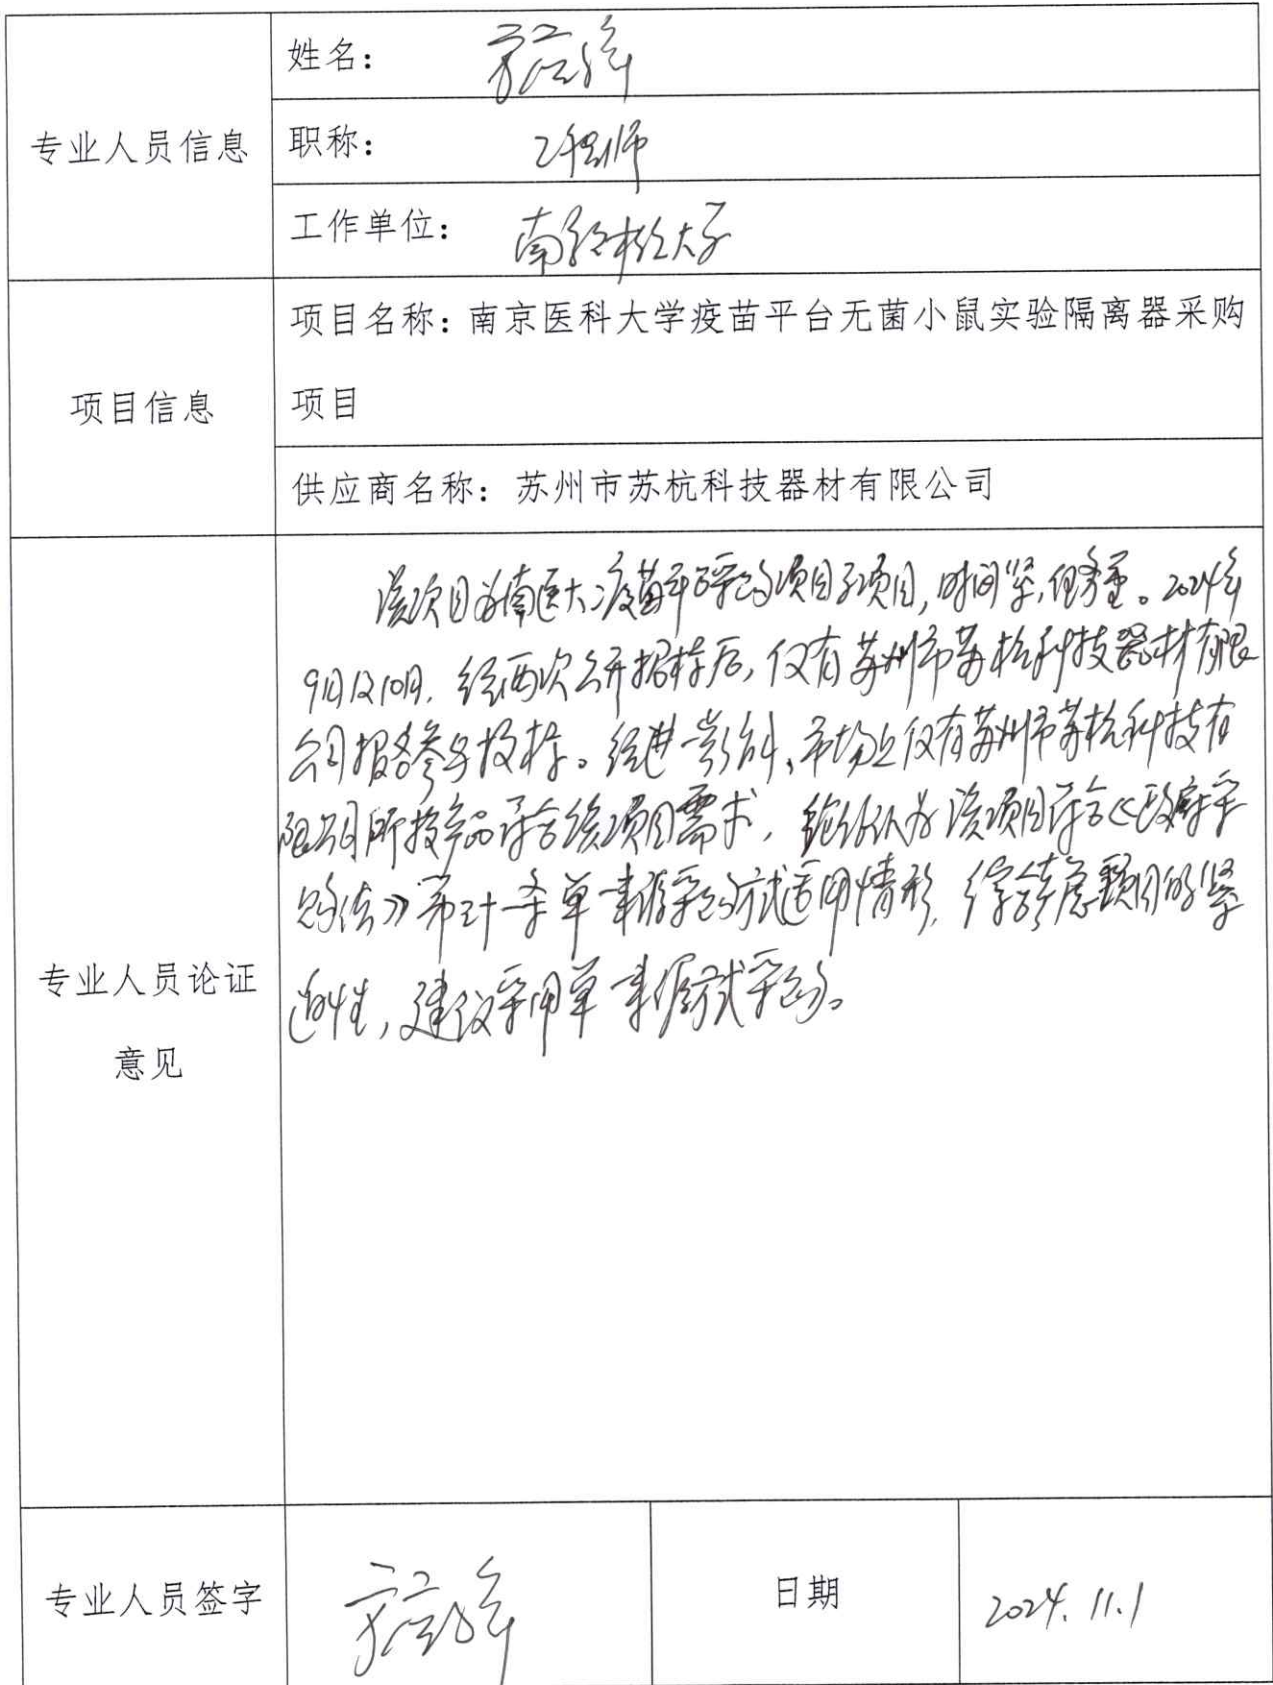 专业人员信息
姓名：
职称： 工程师
工作单位： 大学
项目信息
项目名称：南京医科大学疫苗平台无菌小鼠实验隔离器采购
项目
供应商名称：苏州市苏杭科技器材有限公司
专业人员论证
意见
该项目为南医大疫苗平台采购项目子项目，时间紧，任务重。2024年
9月及10月，经两次公开招标后，仅有苏州市苏杭科技器材有限
公司报名参与投标。经进一步分析，市场上仅有苏州市苏杭科技有
限公司所投产品符合该项目需求，认为该项目符合《政府采
购法》第三十一条单一来源采购方式适用情形，综合考虑项目的紧
迫性，建议采用单一来源方式采购。
专业人员签字
日期
2024.11.1